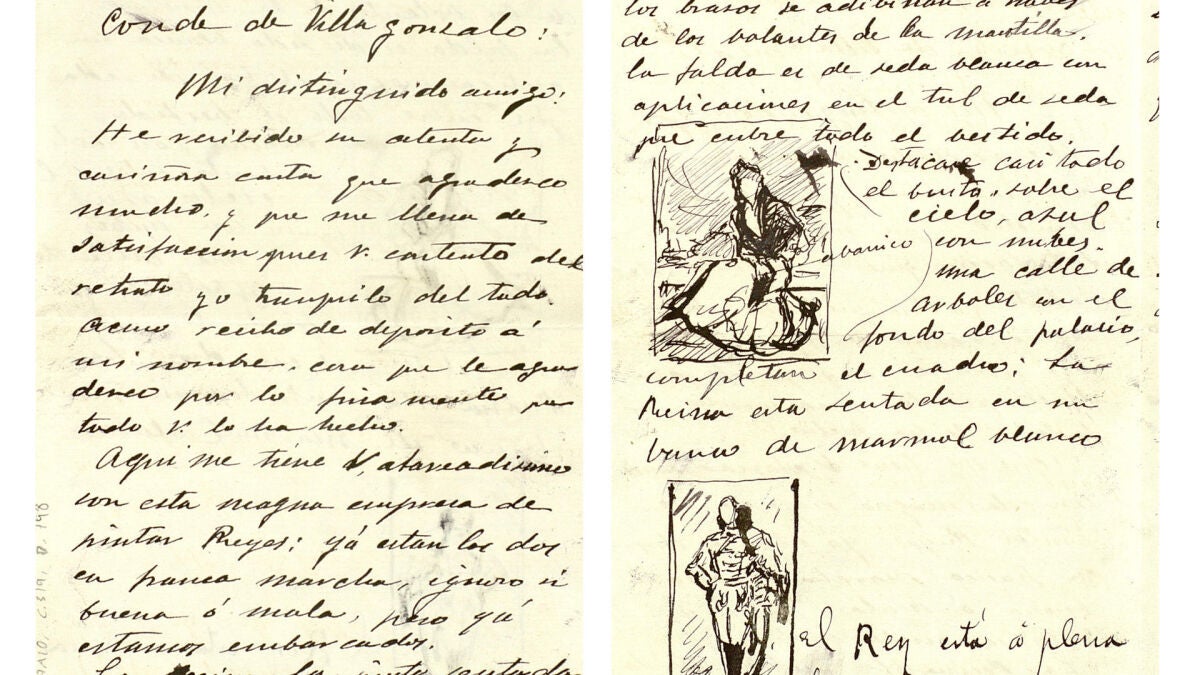 Conde de Villagonzalo:
Mi distinguido amigo:
He recibido su atenta y
cariñosa carta que agradesco
mucho, y que me llena de
satisfaccion pues V. contento del
retrato yo tranquilo del todo.
Acuso recibo de deposito á
mi nombre, cosa que le agra
desco por lo finamente que
todo V. lo ha hecho.
Aqui me tiene V. atareadisimo
con esta magna empresa de
pintar Reyes; yá estan los dos
en franca marcha, ignoro si
buena ó mala, pero yá
estamos embarcados.
La Reina la pinto sentada
C319, D. 198
los brasos se adivinan a traves
de los volantes de la mantilla.
la falda es de seda blanca con
aplicaciones en el tul de seda
que cubre todo el vestido.
Destacase casi todo
el busto sobre el
cielo, azul
abanico
con nubes.
una calle de
arboles con el
fondo del palacio,
completan el cuadro; La
Reina esta sentada en un
banco de marmol blanco
El Rey está á plena